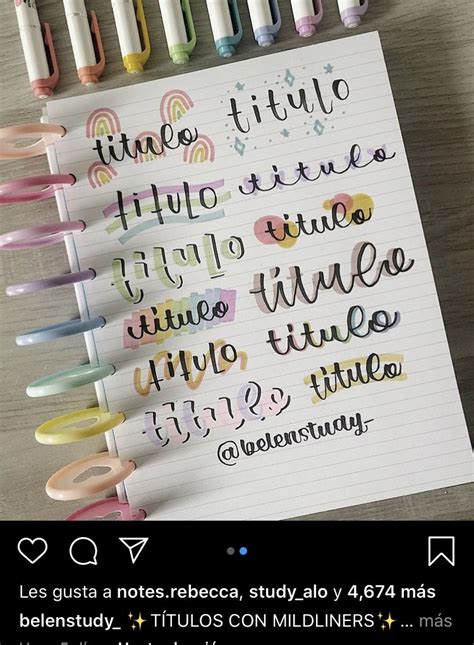 titulo titulo
titulo titulo
titulo titulo
titulo titulo
titulo titulo
titulo titulo
@belenstudy_
Les gusta a notes.rebecca, study_alo y 4,674 más
belenstudy_ ✨TÍTULOS CON MILDLINERS✨... más